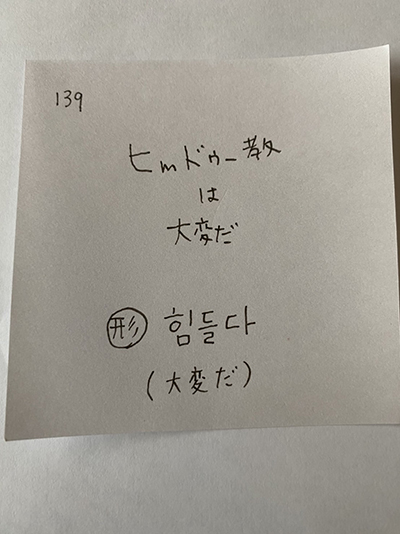 139
ヒmドゥー教
は
大変だ
形 힘들다
(大変だ)